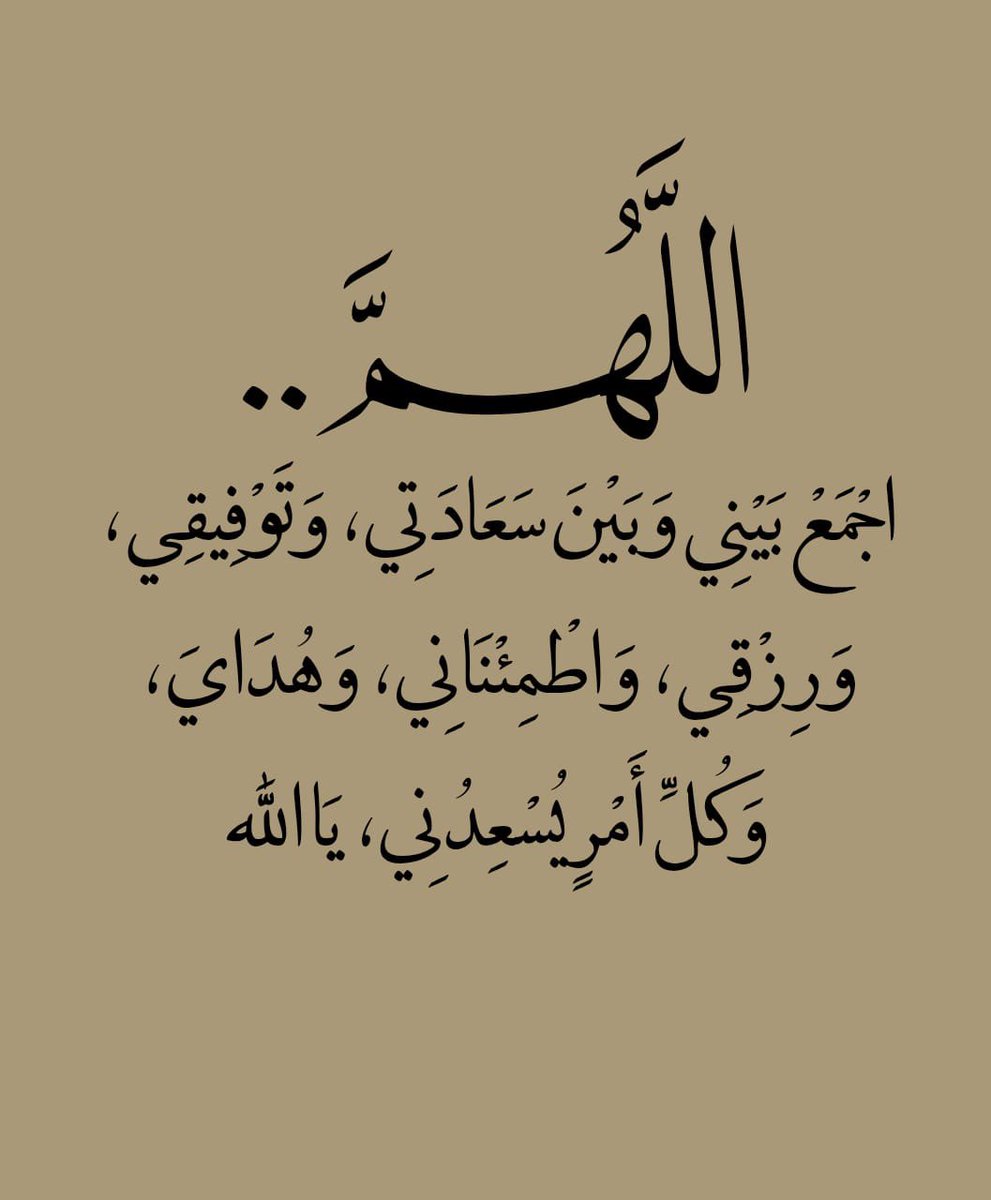 اللَّهُمَّ ..
اجْمَعْ بَيْنِي وَبَيْنَ سَعَادَتِي، وَتَوْفِيقِي،
وَرِزْقِي، وَاطْمِئْنَانِي، وَهُدَايَ،
وَكُلِّ أَمْرٍ يُسْعِدُنِي، يَا اللّٰه